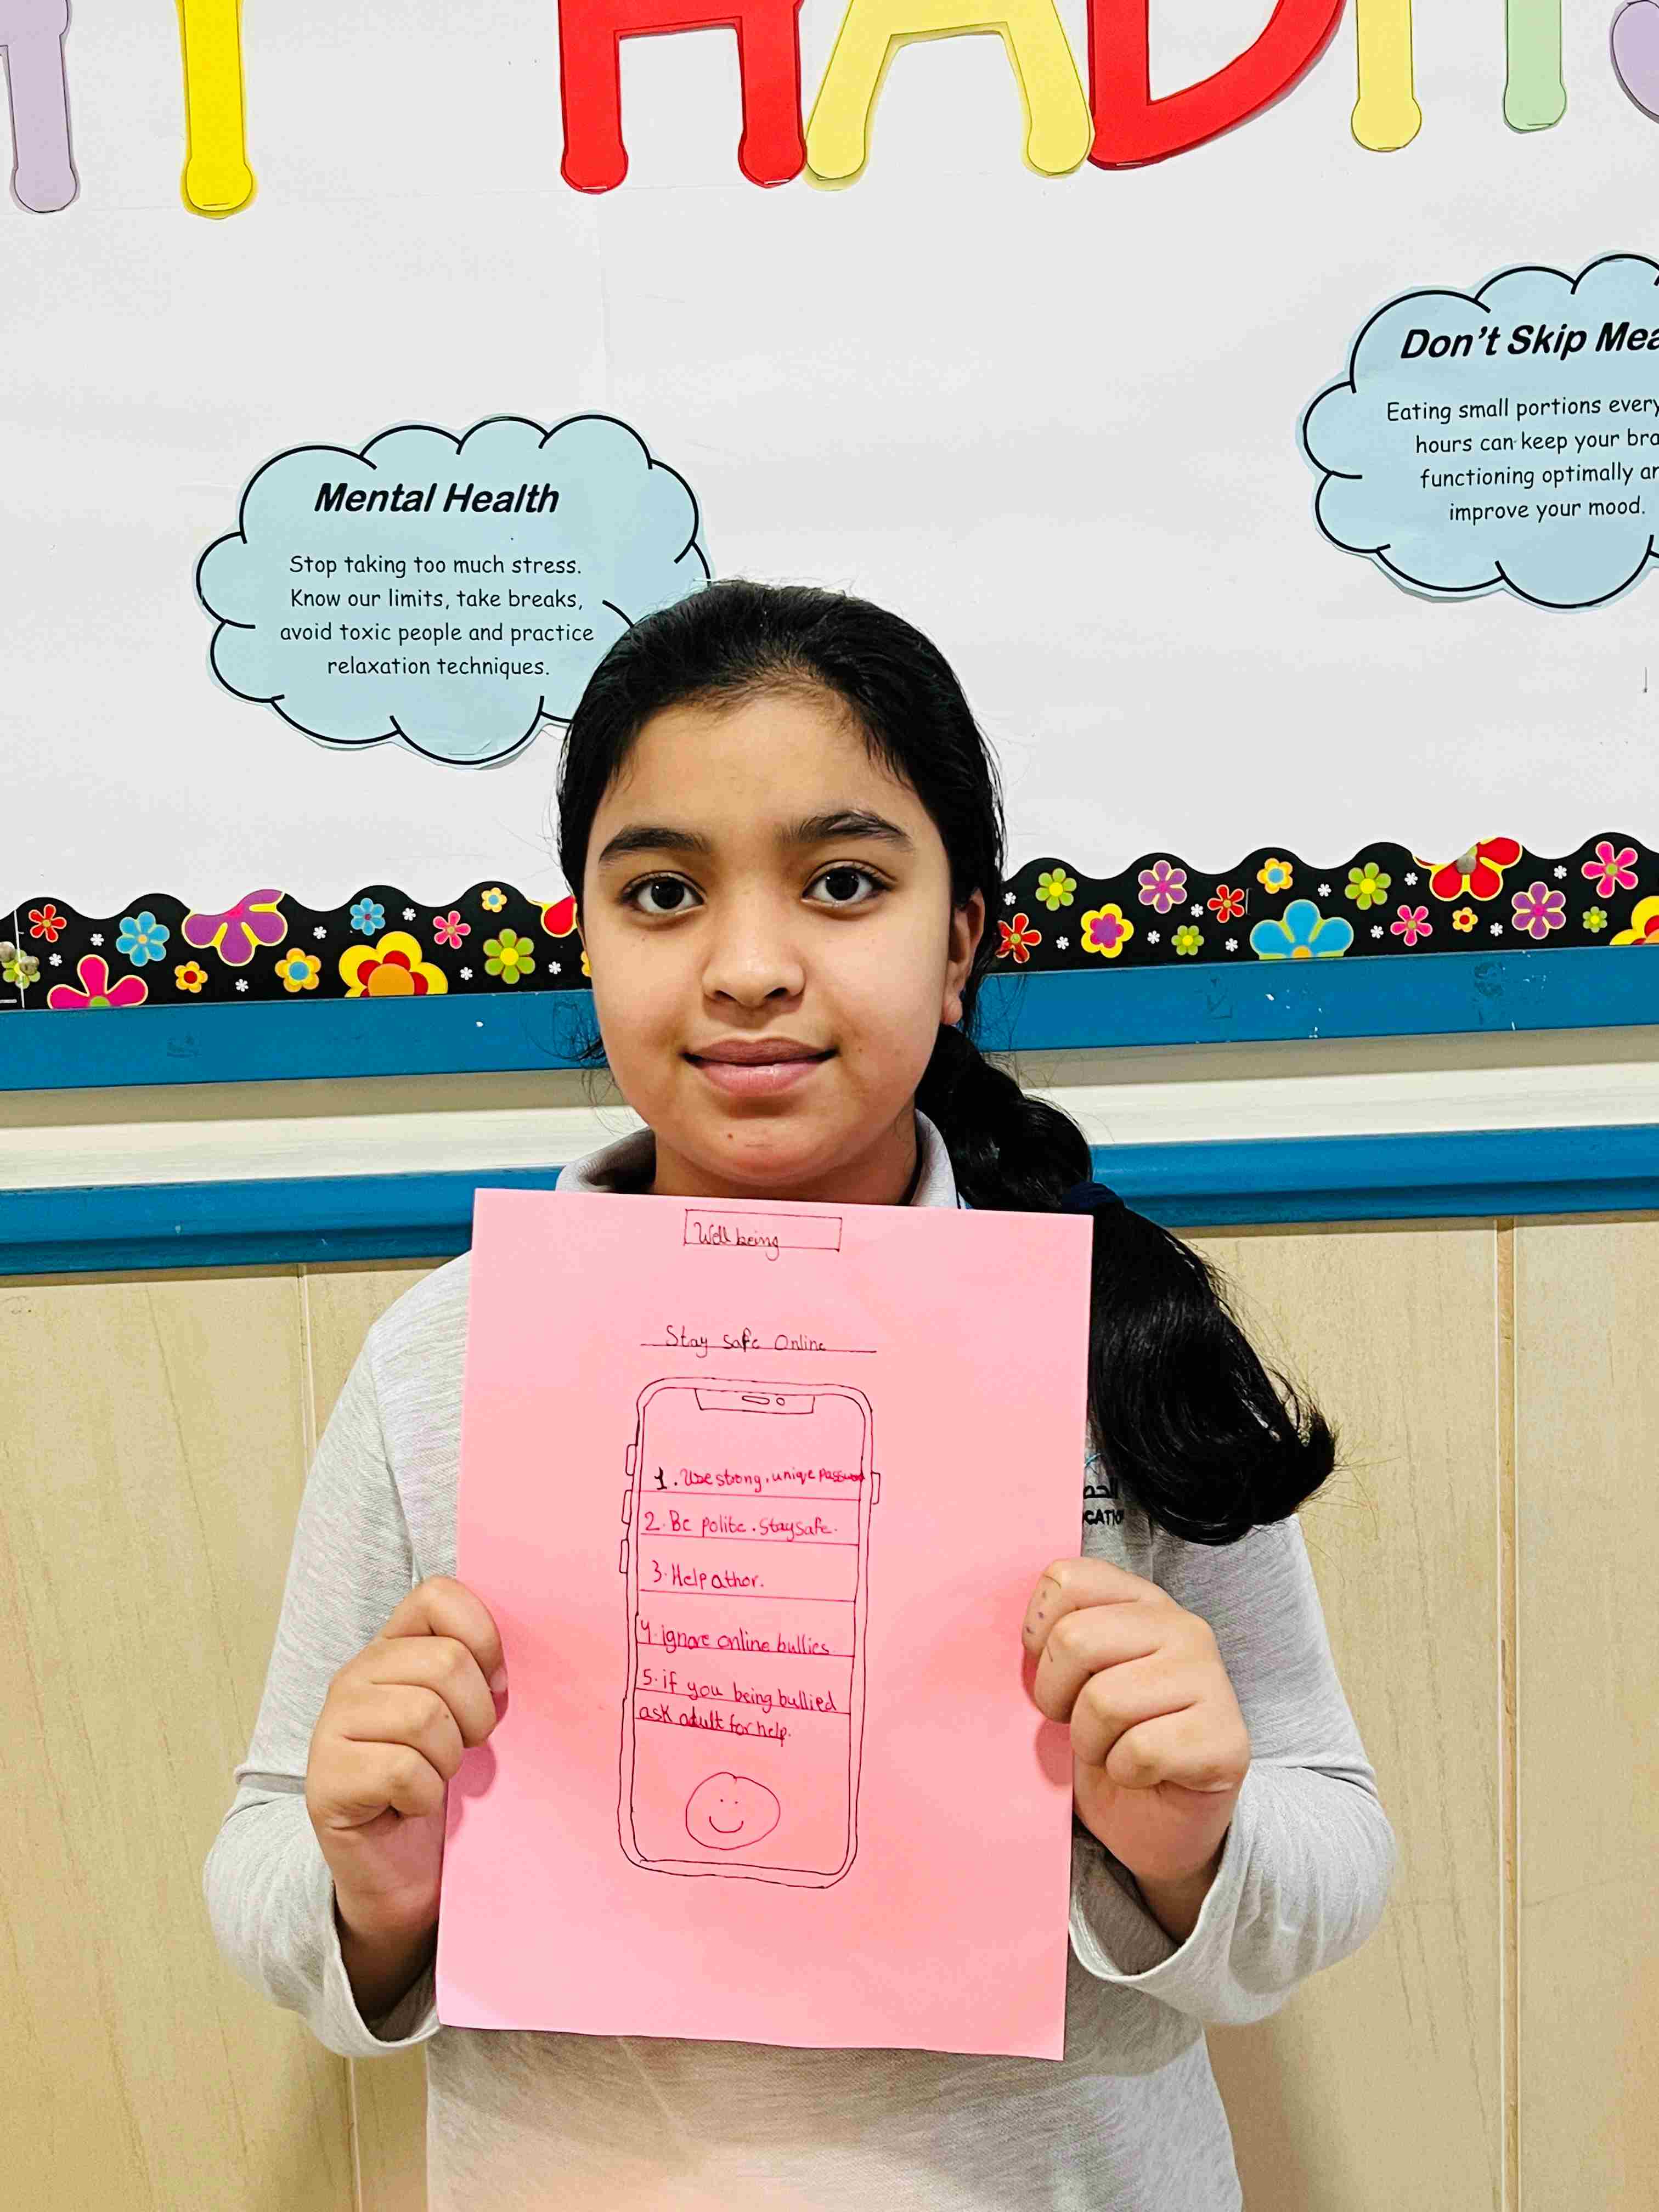 HABITS
Mental Health
Stop taking too much stress.
Know our limits, take breaks,
avoid toxic people and practice
relaxation techniques.
Don't Skip Mea
Eating small portions every
hours can keep your bra
functioning optimally an
improve your mood.
Well being
Stay safe Online
1. Use strong, unique Password
2. Be polite. stay safe.
3. Help athor.
4. ignore online bullies
5. if you being bullied
ask adult for help.